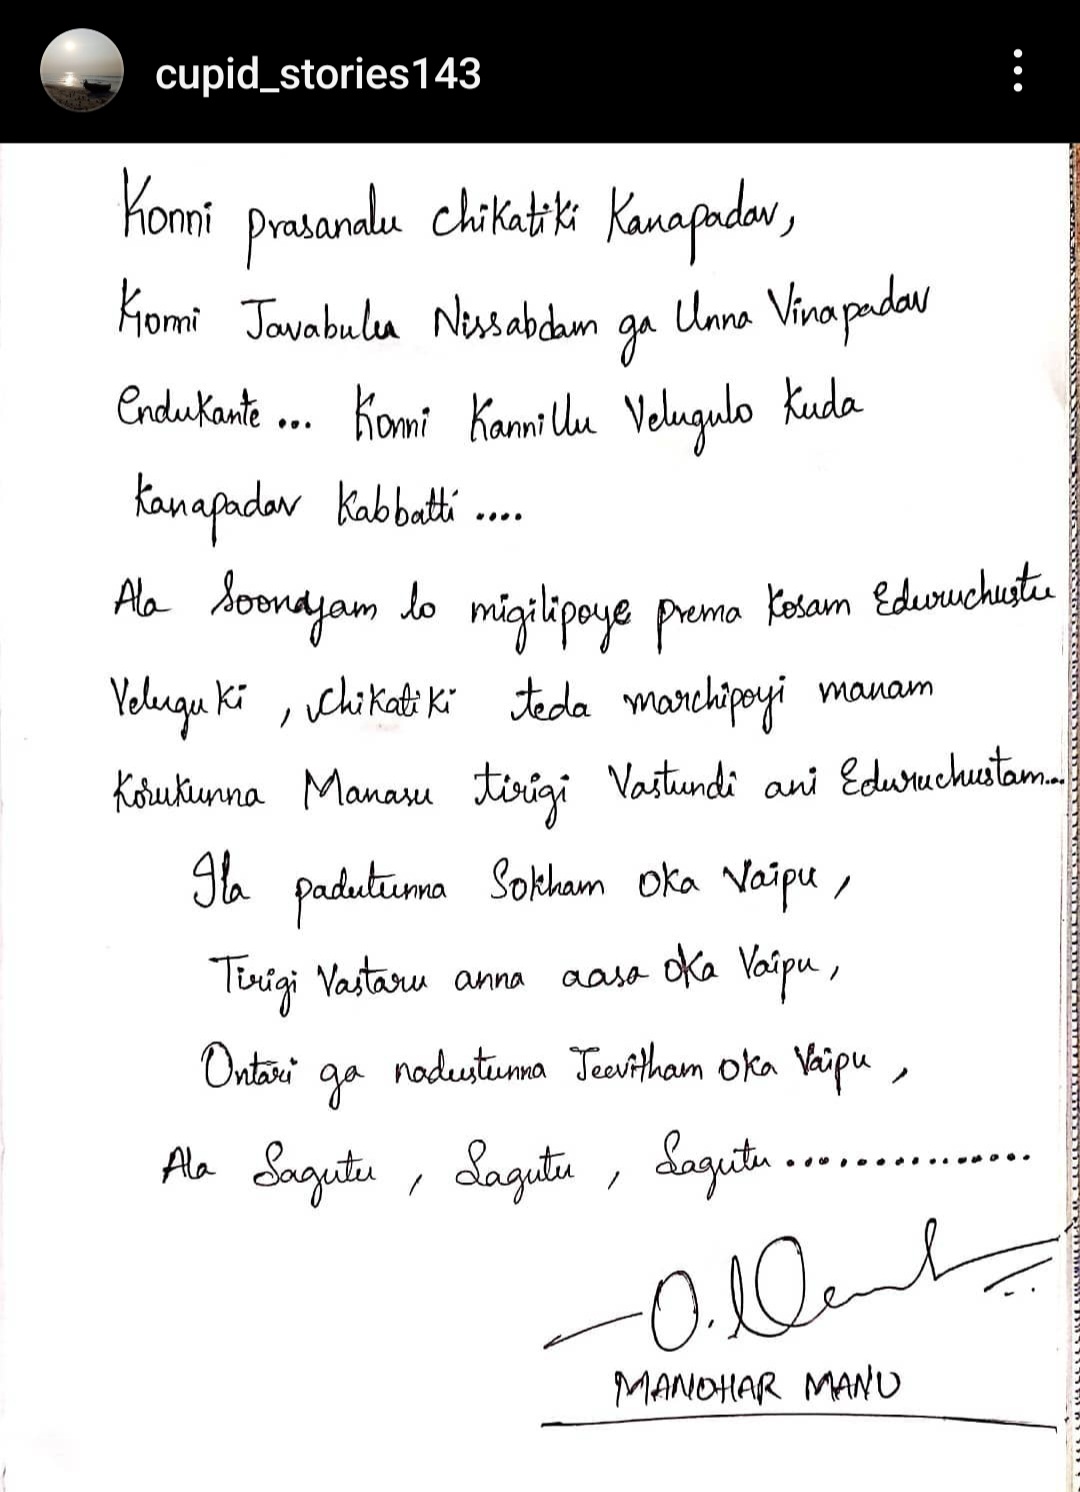 cupid_stories143
Konni prasanalu chikatiki Kanapadav,
Konni Javabulu Nissabdam ga Unna Vinapadav
Endukante ... Konni Kannillu Velugulo Kuda
Kanapadav Kabbatti ....
Ala Soonyam lo migilipoye prema Kosam Eduruchustu
Velugu ki , chikati ki teda marchipoyi manam
Korukunna Manasu tirigi Vastundi ani Eduruchustam...
Ila padutunna Sokham oka Vaipu ,
Tirigi Vastaru anna aasa oka Vaipu ,
Ontari ga nadustunna Jeevitham oka Vaipu ,
Ala Sagutu , Sagutu , Sagutu ...............
MANOHAR MANU